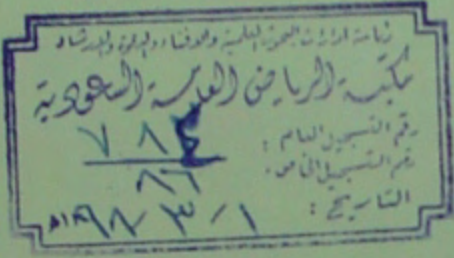 رئاسة ادارات البحوث العلمية والافتاء والدعوة والارشاد
مكتبة الرياض العامة السعودية
رقم التسجيل العام : ٧٨٤
رقم التسجيل الخاص : ٨٦
التاريخ :